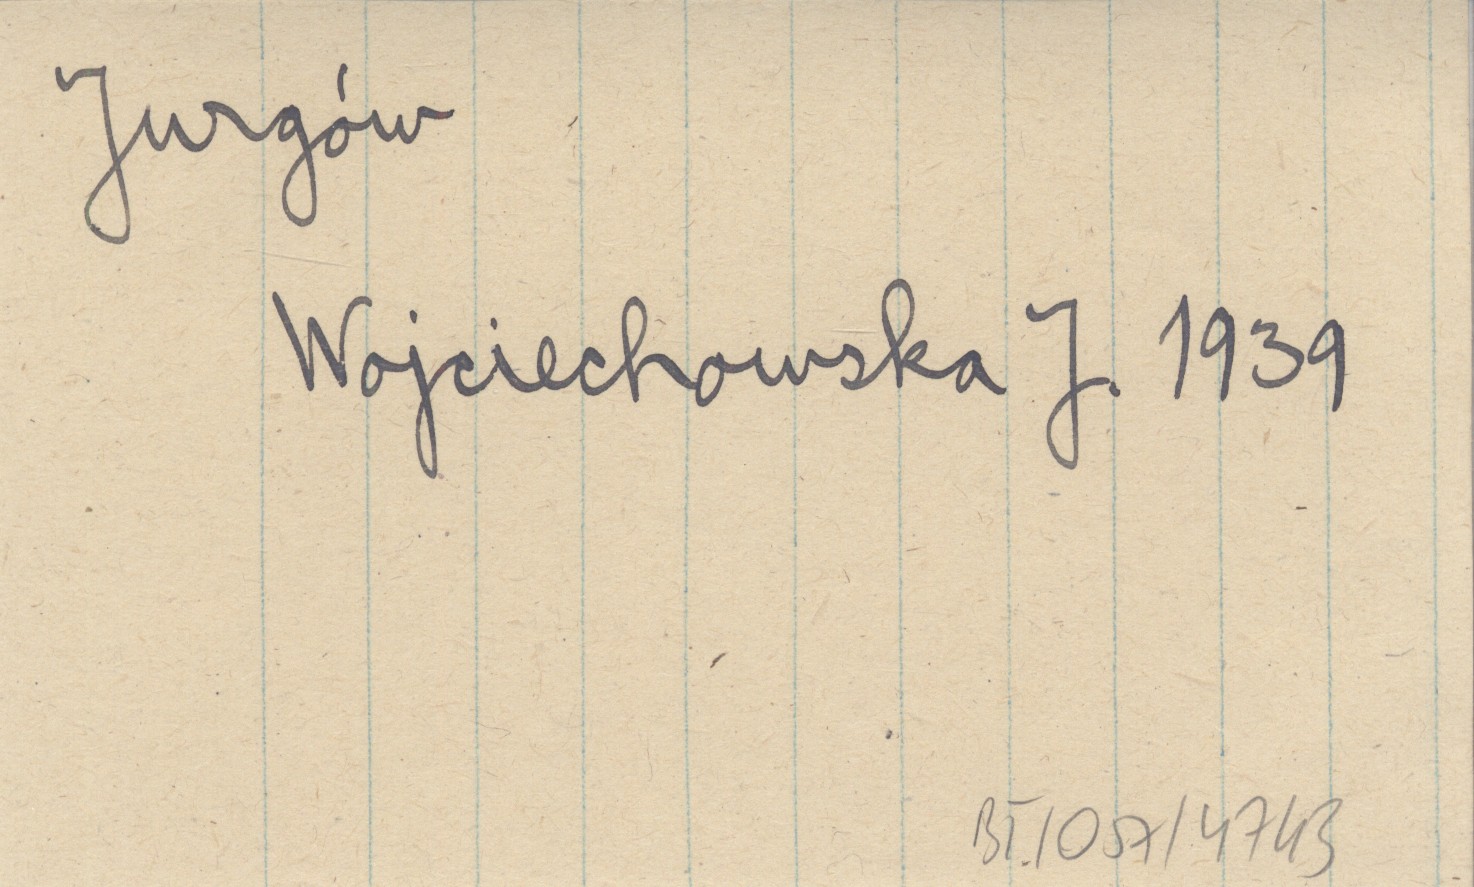 Jurgów
Wojciechowska J. 1939
BT./057/4743